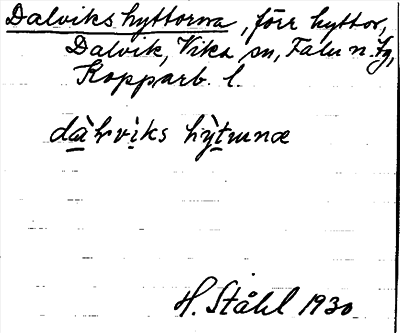 Dalvikshyttorna, förr hyttor,
Dalvik, Vika sn, Falu n. tg,
Kopparb. l.
dàlvìks hỳtuṇæ
H. Ståhl 1930